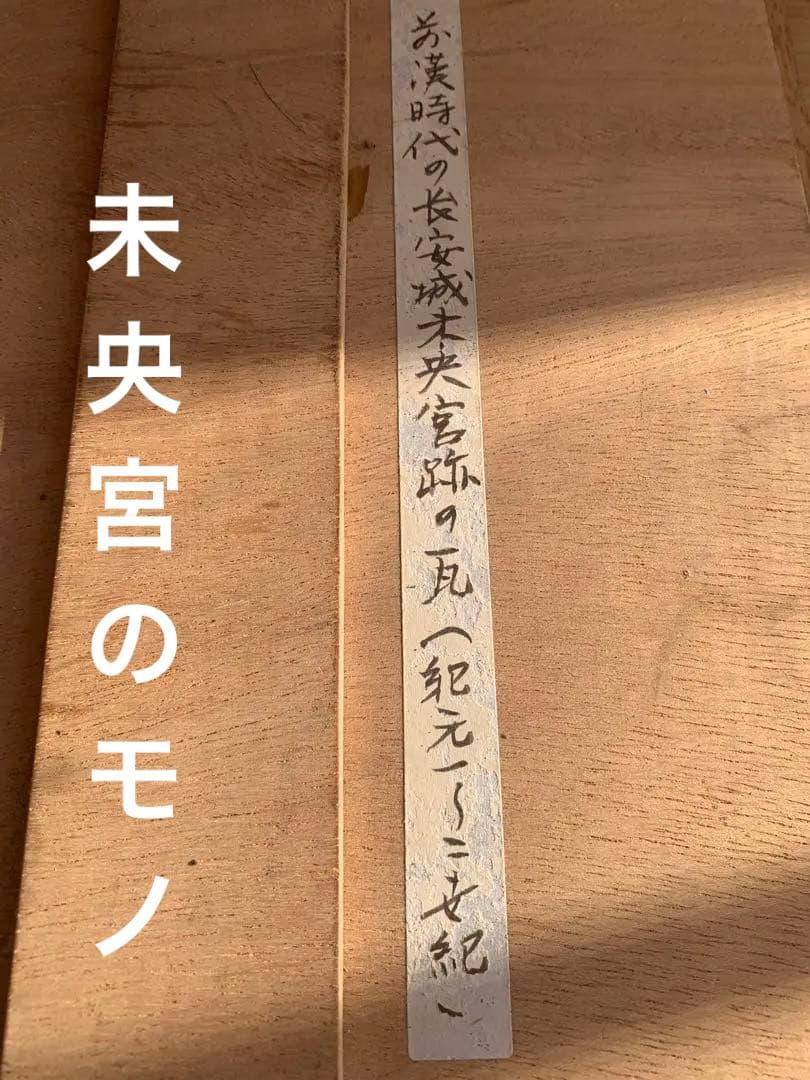 前漢時代の长安城未央宮跡の瓦(紀元一〜二世紀)
未央宮のモノ